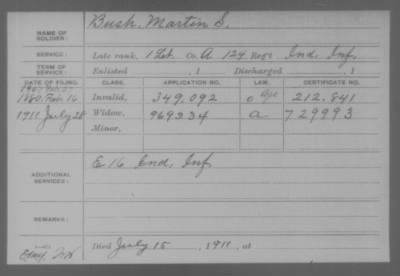 NAME OF SOLDIER: Bush, Martin S.
SERVICE: Late rank, 1 Lt. Co. A 124 Reg't Ind. Inf.
TERM OF SERVICE: Enlisted , 1 Discharged , 1
DATE OF FILING. CLASS. APPLICATION NO. LAW. CERTIFICATE NO.
1880. Feb. 16 Invalid, 349,092 Age 212,841
1911 July 28 Widow, 969334 a 729993
Minor,
ADDITIONAL SERVICES: E 16 Ind. Inf.
REMARKS:
Died July 15, 1911, at